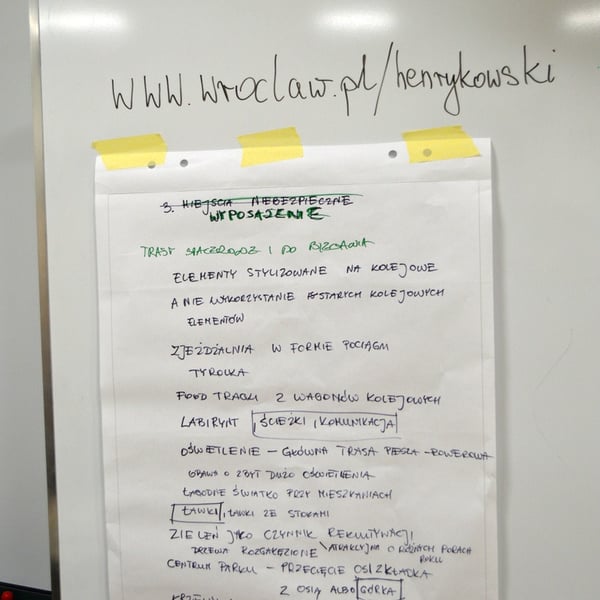 www.wroclaw.pl/henrykowski
3. MIEJSCA NIEBEZPIECZNE
WYPOSAŻENIE
TRASY SPACEROWE I DO BIEGANIA
ELEMENTY STYLIZOWANE NA KOLEJOWE
A NIE WYKORZYSTANIE STARYCH KOLEJOWYCH
ELEMENTÓW
ZJEŻDŻALNIA W FORMIE POCIĄGU
TYROLKA
FOOD TRACKI Z WAGONÓW KOLEJOWYCH
LABIRYNT ŚCIEŻKI, KOMUNIKACJA
OŚWIETLENIE – GŁÓWNA TRASA PIESZA-ROWEROWA
OBAWA O ZBYT DUŻO OŚWIETLENIA
ŁAGODNE ŚWIATŁO PRZY MIESZKANIACH
ŁAWKI, ŁAWKI ZE STOŁAMI
ZIELEŃ JAKO CZYNNIK REKULTYWACJI
DRZEWA ROZGAŁĘZIONE \ATRAKCYJNA O RÓŻNYCH PORACH
ROKU
CENTRUM PARKU – PRZECIĘCIE OSI ZKŁADKA
Z OSIĄ ALBO GÓRKA